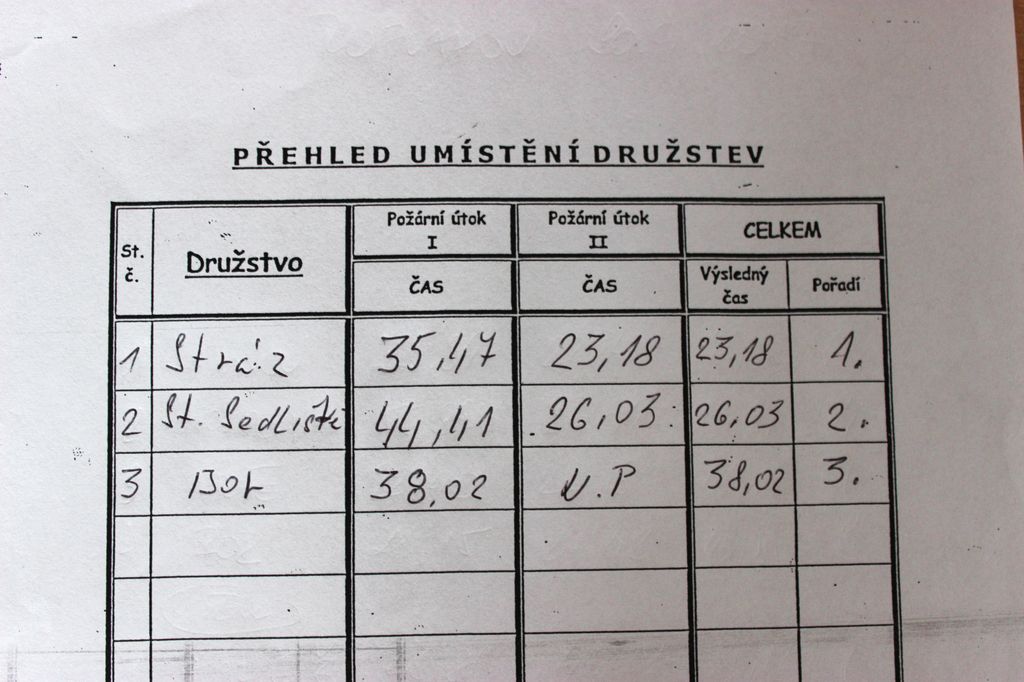 PŘEHLED UMÍSTĚNÍ DRUŽSTEV
St. č. Družstvo Požární útok I Požární útok II CELKEM
ČAS ČAS Výsledný čas Pořadí
1 Stráž 35,47 23,18 23,18 1.
2 St. Sedliště 44,41 26,03 26,03 2.
3 Bor 38,02 N.P 38,02 3.